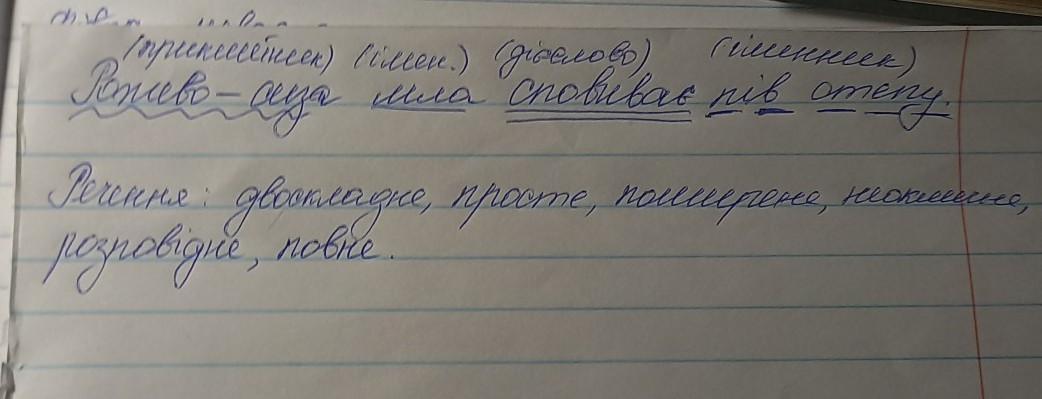 (прикметник) (імен.) (дієслово) (іменник)
Рожево-сиза мла сповиває пів степу.
Речення: двоскладне, просте, поширене, неокличне,
розповідне, повне.